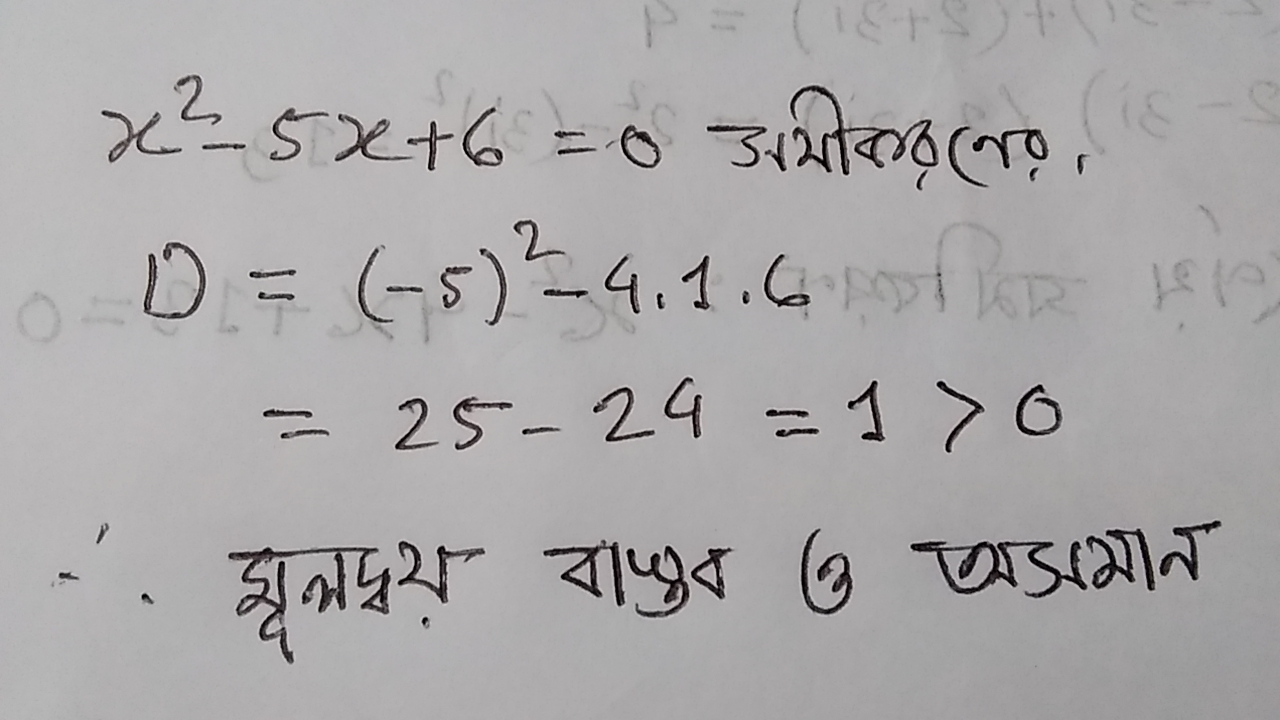 x² - 5x + 6 = 0 সমীকরনের,
D = (-5)² - 4.1.6
= 25 - 24 = 1 > 0
∴ মূলদ্বয় বাস্তব ও অসমান